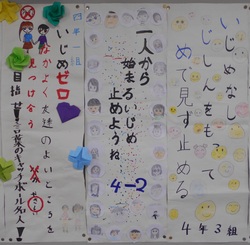 いじめなし
じしんをもって
めで見ず止める
4年3組
一人から
始まるいじめ
止めようね
4-2
四年一組
いじめゼロ
なかよく友達のよいところを
見つけ合う
目指せ!言葉のキャッチボール名人!